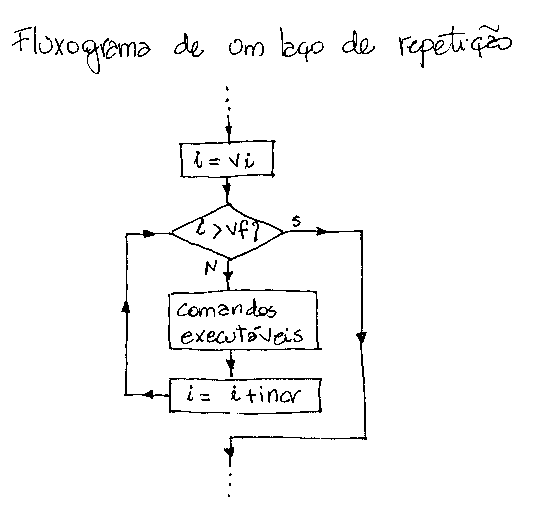 Fluxograma de um laço de repetição
i = vi
i > vf?
S
N
comandos
executáveis
i = i + incr